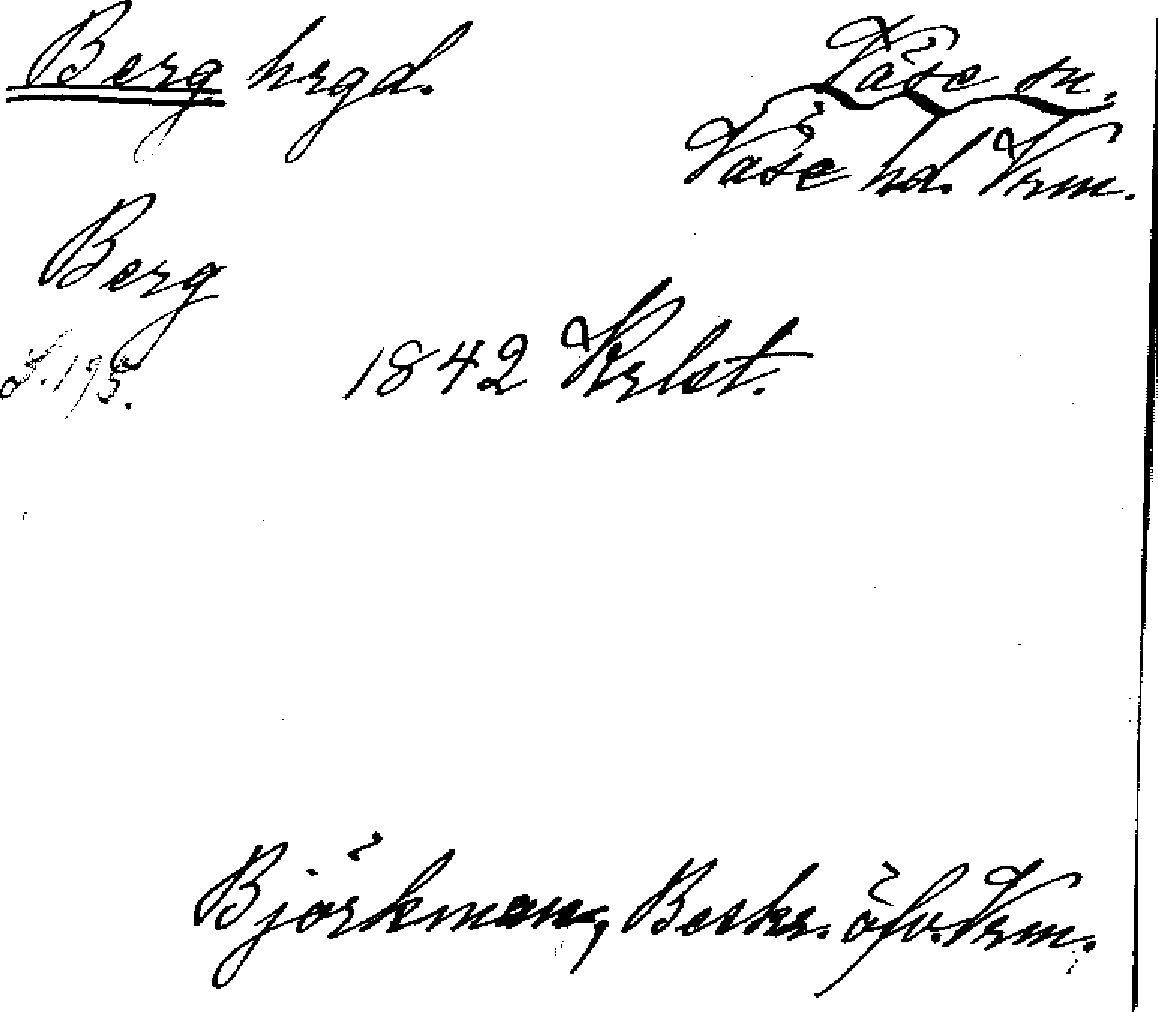 Berg hrgd. Väse sn.
Väse hd. Vrm.
Berg
S. 195. 1842 Krlst.
Björkman, Beskr. öfv. Vrm.